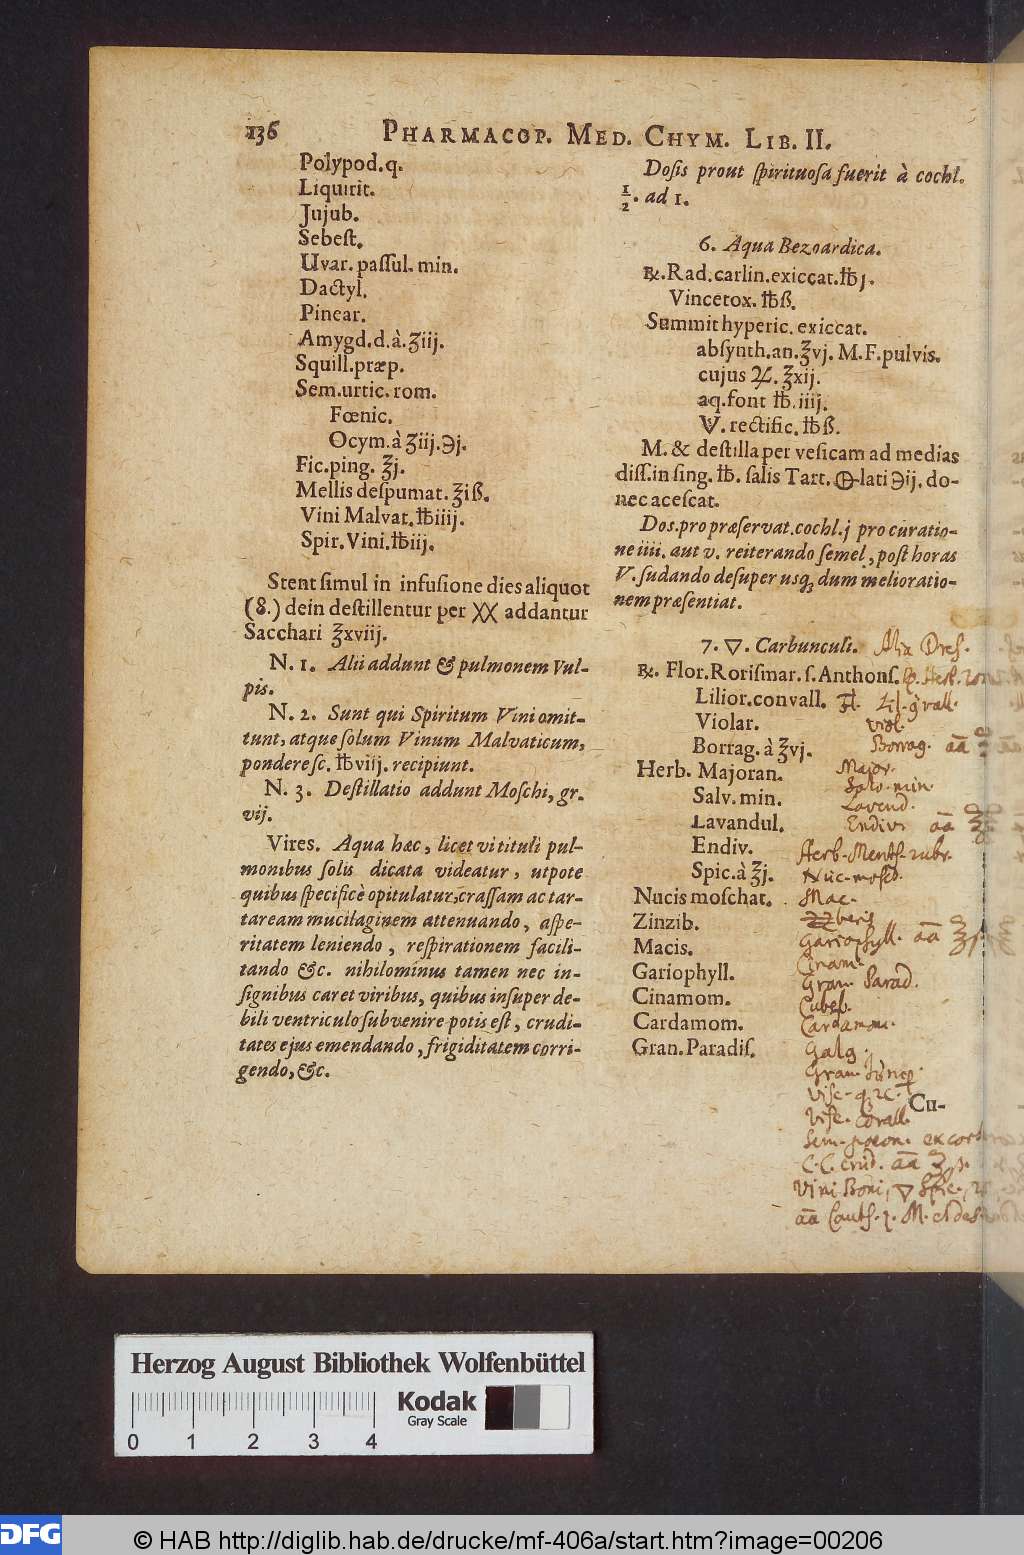 136 PHARMACOP. MED. CHYM. LIB. II.
Polypod. q.
Liquirit.
Jujub.
Sebeſt.
Uvar. paſſul. min.
Dactyl.
Pinear.
Amygd. d. à. ʒiij.
Squill. præp.
Sem. urtic. rom.
Fœnic.
Ocym. à ʒiij. ℈j.
Fic. ping. ℥j.
Mellis deſpumat. ℥iß.
Vini Malvat. ℔iiij.
Spir. Vini. ℔iij.
Stent ſimul in infuſione dies aliquot
(8.) dein deſtillentur per XX addantur
Sacchari ℥xviij.
N. 1. Alii addunt & pulmonem Vul-
pis.
N. 2. Sunt qui Spiritum Vini omit-
tunt, atque ſolum Vinum Malvaticum,
pondere ſc. ℔viij. recipiunt.
N. 3. Deſtillatio addunt Moſchi, gr.
vij.
Vires. Aqua hæc, licet vi tituli pul-
monibus ſolis dicata videatur, utpote
quibus ſpecificè opitulatur, craſſam ac tar-
taream mucilaginem attenuando, aſpe-
ritatem leniendo, reſpirationem facili-
tando &c. nihilominus tamen nec in-
ſignibus caret viribus, quibus inſuper de-
bili ventriculo ſubvenire potis eſt, crudi-
tates ejus emendando, frigiditatem corri-
gendo, &c.
Doſis prout ſpirituoſa fuerit à cochl.
1/2. ad 1.
6. Aqua Bezoardica.
℞. Rad. carlin. exiccat. ℔j.
Vincetox. ℔ß.
Summit hyperic. exiccat.
abſynth. an. ℥vj. M. F. pulvis.
cujus ♃. ℥xij.
aq. font ℔. iiij.
V. rectific. ℔ß.
M. & deſtilla per veſicam ad medias
diſſ. in ſing. ℔. ſalis Tart. -lati ℈ij. do-
nec aceſcat.
Doſ. pro præſervat. cochl. j pro curatio-
ne iiii. aut v. reiterando ſemel, poſt horas
V. ſudando deſuper usq; dum melioratio-
nem præſentiat.
7. 🜄. Carbunculi. Alia Dreſ.
℞. Flor. Roriſmar. ſ. Anthoſ.
Lilior. convall. Fl. Lil. gvall.
Violar. viol.
Borrag. à ℥vj. Borrag. āā
Herb. Majoran. Major.
Salv. min. Salv. min.
Lavandul. Lavend.
Endiv. Endiv. āā
Spic. à ℥j. Herb. Menth. rubr.
Nucis moſchat. Nuc. moſch.
Zinzib. Mac.
Macis. Gariophyll. āā
Gariophyll. Cinam.
Cinamom. Gran. Parad.
Cardamom. Cubeb.
Gran. Paradiſ. Cardamom.
Galg.
Gran.
Viſc. q̃rc.
Viſc. Corall.
Sem. pæon. ex cort
C. C. crud. āā
Vini Boni, 🜄 Spic.
āā M.
Cu-
Herzog August Bibliothek Wolfenbüttel
Kodak
Gray Scale
0 1 2 3 4
DFG
© HAB http://diglib.hab.de/drucke/mf-406a/start.htm?image=00206